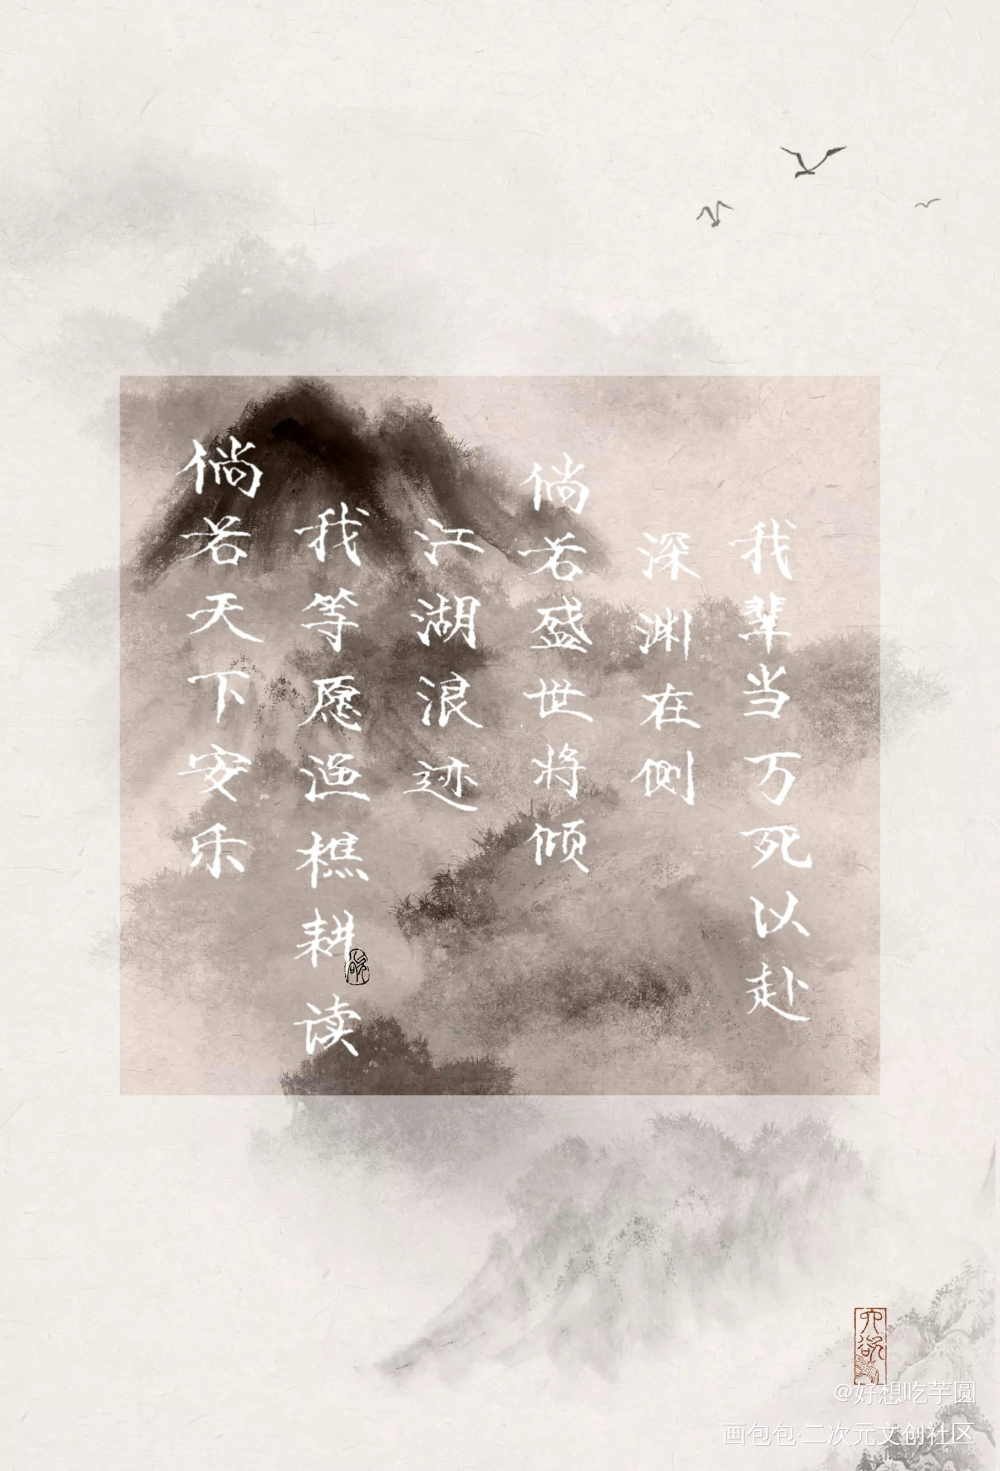 倘若天下安乐
我等愿渔樵耕读
江湖浪迹
倘若盛世将倾
深渊在侧
我辈当万死以赴
@好想吃芋圆
画包包·二次元文创社区